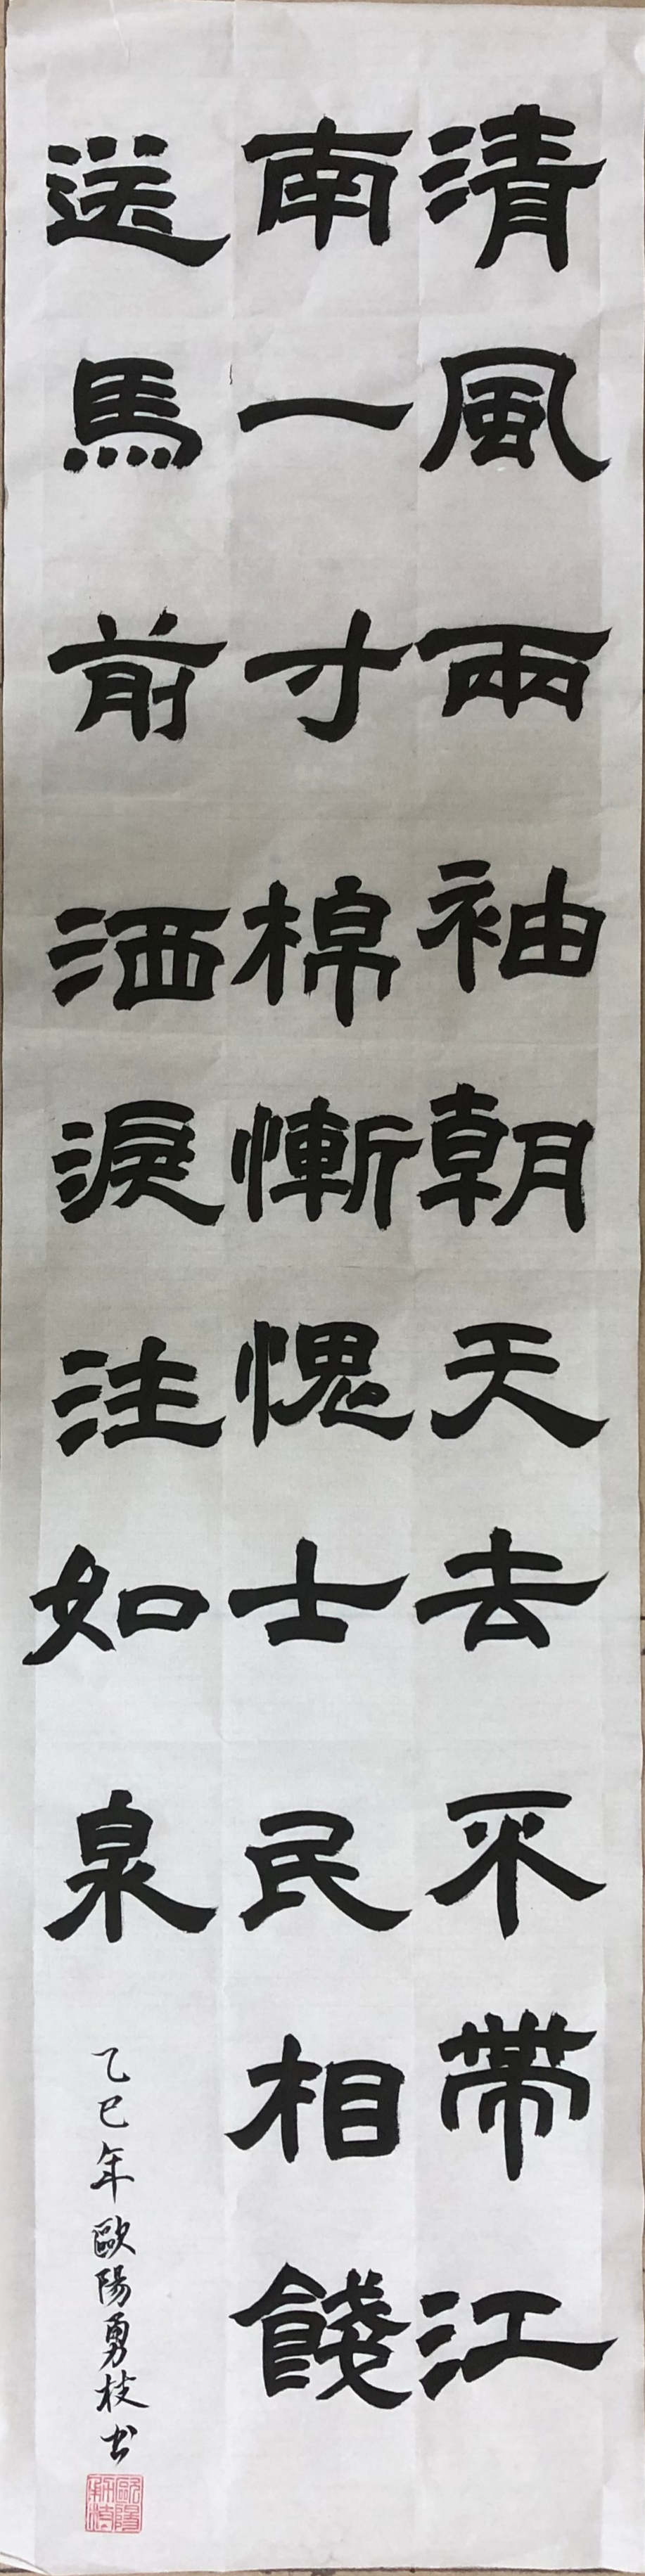 清風兩袖朝天去不帶江
南一寸棉慚愧士民相餞
送馬前洒淚注如泉
乙巳年歐陽勇枝书